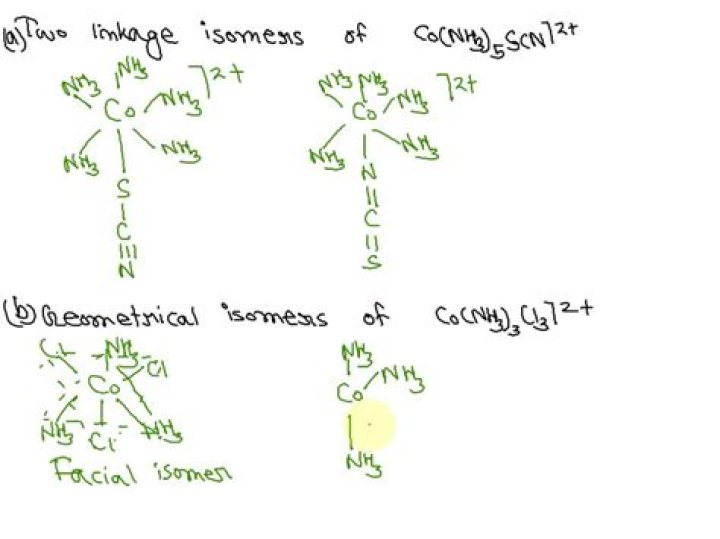 (a) Two linkage isomers of Co(NH3)5SCN]2+
NH3 NH3 NH3 ]2+
Co
NH3 NH3
S
C
N
NH3 NH3 NH3 ]2+
Co
NH3 NH3
N
C
S
(b) Geometrical isomers of Co(NH3)3Cl3]2+
Cl NH3 Cl
Co
NH3 Cl NH3
Facial isomer
NH3
Co NH3
NH3